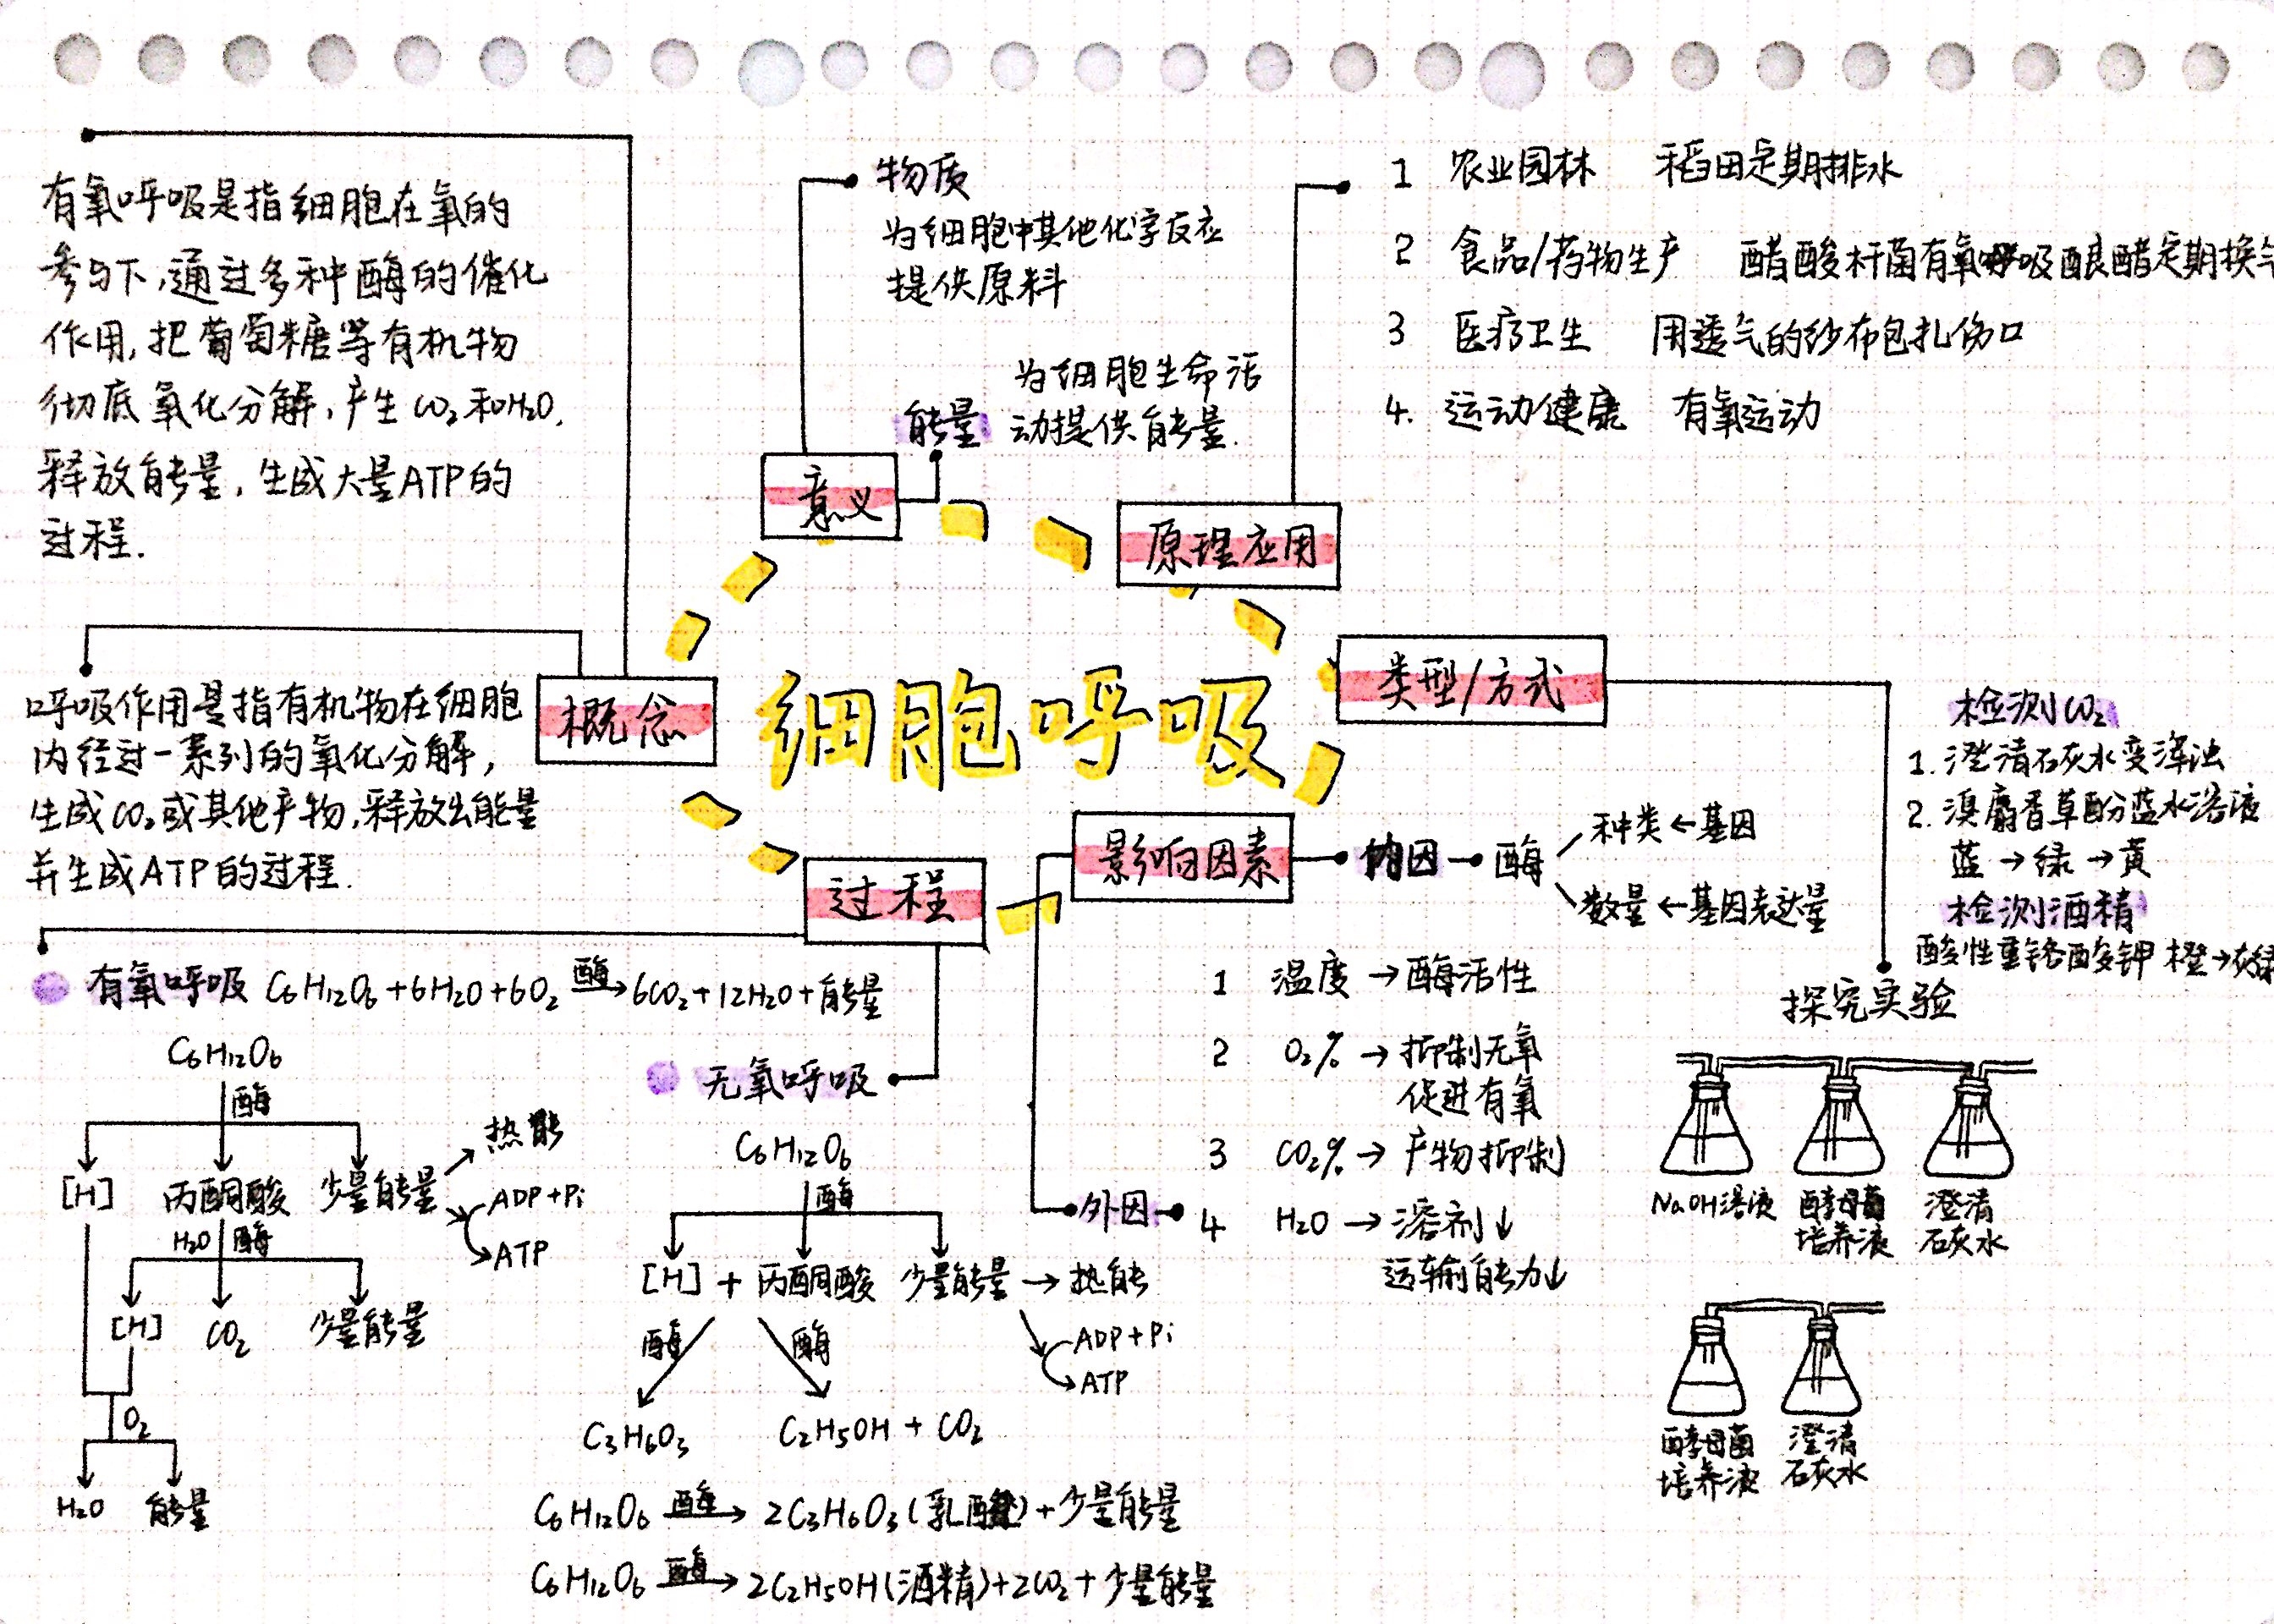 有氧呼吸是指细胞在氧的
参与下,通过多种酶的催化
作用,把葡萄糖等有机物
彻底氧化分解,产生CO₂和H₂O,
释放能量,生成大量ATP的
过程.
物质
为细胞中其他化学反应
提供原料
能量
为细胞生命活
动提供能量.
意义
1 农业园林 稻田定期排水
2 食品/药物生产 醋酸杆菌有氧呼吸酿醋定期换气
3 医疗卫生 用透气的纱布包扎伤口
4. 运动健康 有氧运动
原理应用
呼吸作用是指有机物在细胞
内经过一系列的氧化分解,
生成CO₂或其他产物,释放出能量
并生成ATP的过程.
概念
细胞呼吸
类型/方式
检测CO₂
1. 澄清石灰水变浑浊
2. 溴麝香草酚蓝水溶液
蓝→绿→黄
检测酒精
酸性重铬酸钾 橙→灰绿
探究实验
NaOH溶液
酵母菌
培养液
澄清
石灰水
酵母菌
培养液
澄清
石灰水
影响因素
内因→酶
种类←基因
数量←基因表达量
外因
1 温度→酶活性
2 O₂%→抑制无氧
促进有氧
3 CO₂%→产物抑制
4 H₂O→溶剂↓
运输能力↓
过程
有氧呼吸 C₆H₁₂O₆+6H₂O+6O₂ 酶→ 6CO₂+12H₂O+能量
C₆H₁₂O₆
酶
[H] 丙酮酸 少量能量
热能
ADP+Pi
ATP
H₂O 酶
[H] CO₂ 少量能量
O₂
H₂O 能量
无氧呼吸
C₆H₁₂O₆
酶
[H] + 丙酮酸 少量能量→热能
酶 酶
ADP+Pi
ATP
C₃H₆O₃ C₂H₅OH + CO₂
C₆H₁₂O₆ 酶→ 2C₃H₆O₃(乳酸)+少量能量
C₆H₁₂O₆ 酶→ 2C₂H₅OH(酒精)+2CO₂+少量能量